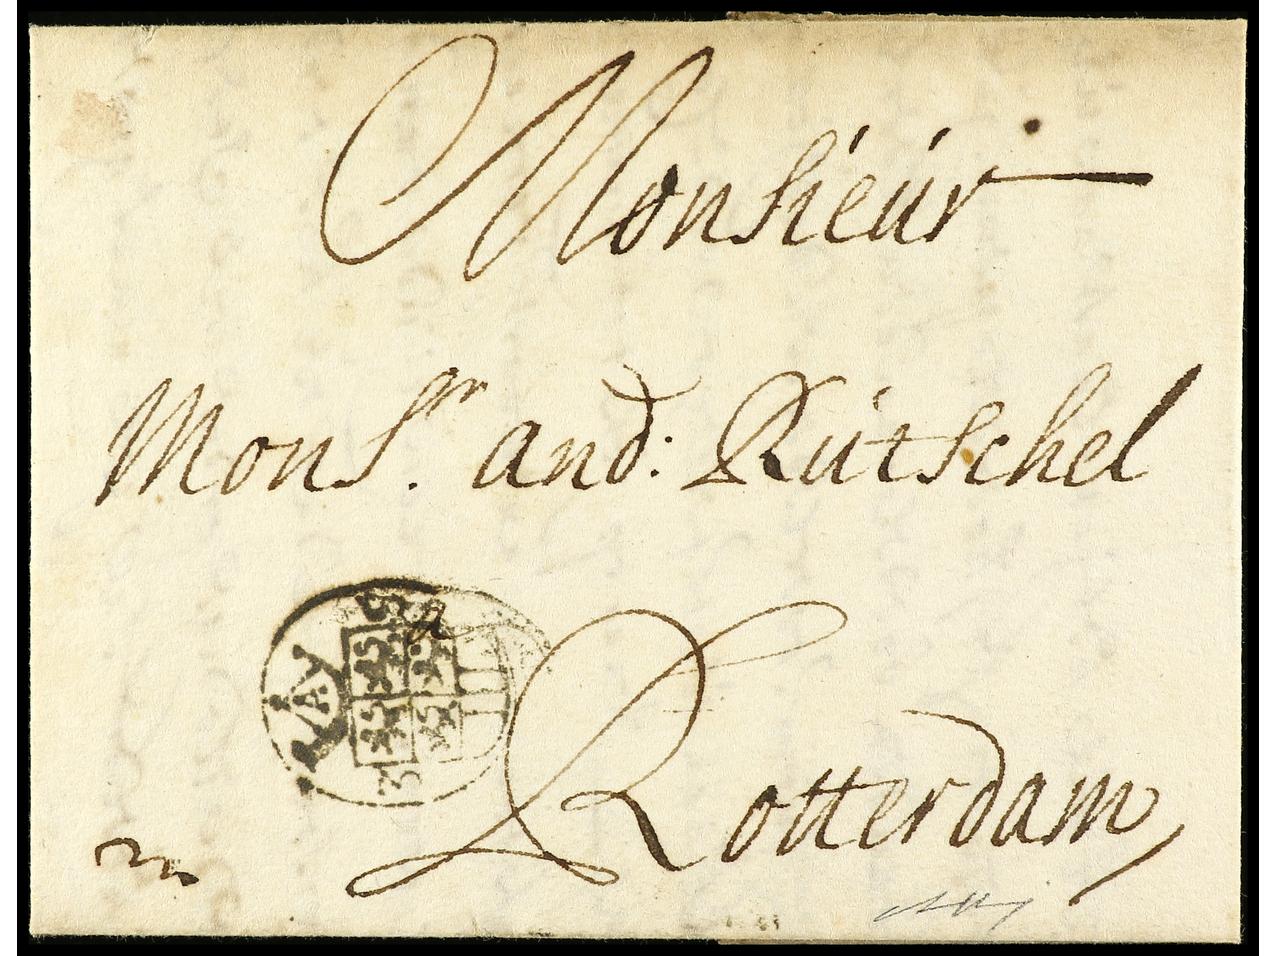 Monsieúr
Monsr. and: Rútschel
a
Rotterdam